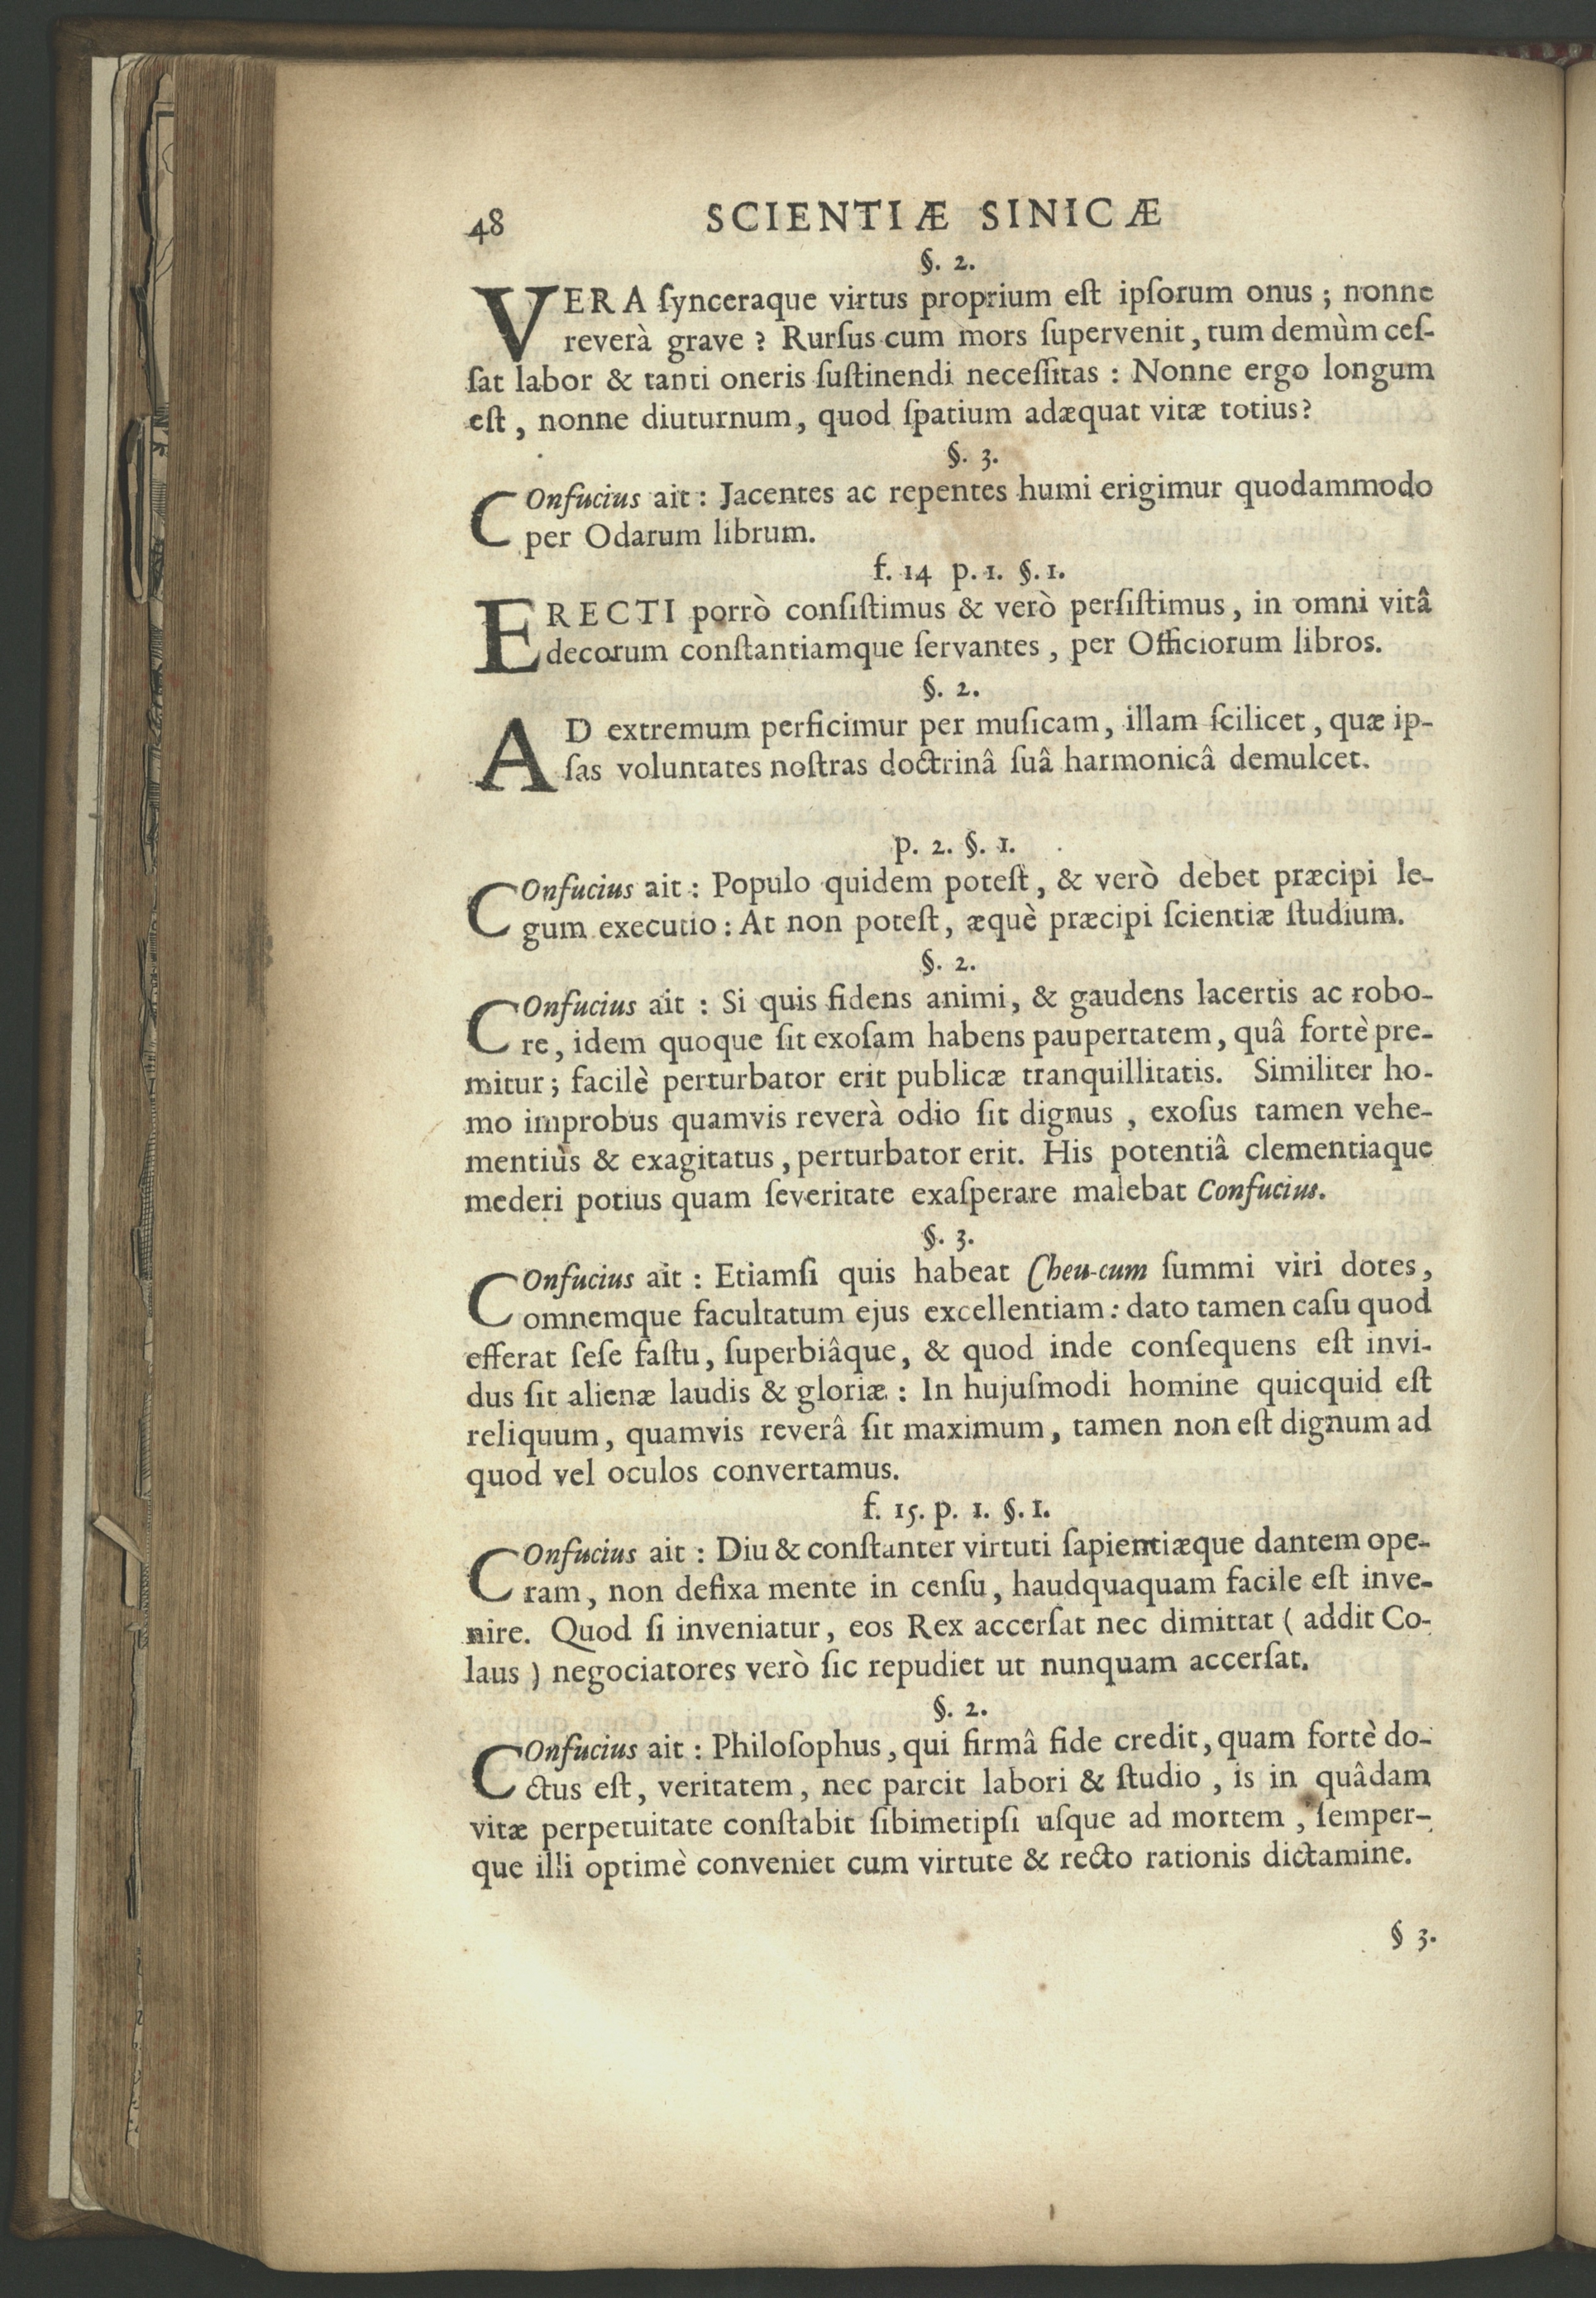 48 SCIENTIÆ SINICÆ
§. 2.
VERA ſynceraque virtus proprium eſt ipſorum onus ; nonne
reverà grave ? Rurſus cum mors ſupervenit, tum demùm ceſ-
ſat labor & tanti oneris ſuſtinendi neceſſitas : Nonne ergo longum
eſt , nonne diuturnum, quod ſpatium adæquat vitæ totius?
§. 3.
COnfucius ait : Jacentes ac repentes humi erigimur quodammodo
per Odarum librum.
f. 14 p. 1. §. 1.
ERECTI porrò conſiſtimus & verò perſiſtimus, in omni vitâ
decorum conſtantiamque ſervantes , per Officiorum libros.
§. 2.
AD extremum perficimur per muſicam, illam ſcilicet, quæ ip-
ſas voluntates noſtras doctrinâ ſuâ harmonicâ demulcet.
p. 2. §. 1.
COnfucius ait : Populo quidem poteſt, & verò debet præcipi le-
gum executio : At non poteſt, æquè præcipi ſcientiæ ſtudium.
§. 2.
COnfucius ait : Si quis fidens animi, & gaudens lacertis ac robo-
re, idem quoque ſit exoſam habens paupertatem, quâ fortè pre-
mitur; facilè perturbator erit publicæ tranquillitatis. Similiter ho-
mo improbus quamvis reverà odio ſit dignus , exoſus tamen vehe-
mentiùs & exagitatus, perturbator erit. His potentiâ clementiaque
mederi potius quam ſeveritate exaſperare malebat Confucius.
§. 3.
COnfucius ait : Etiamſi quis habeat Cheu-cum ſummi viri dotes,
omnemque facultatum ejus excellentiam : dato tamen caſu quod
efferat ſeſe faſtu, ſuperbiâque, & quod inde conſequens eſt invi-
dus ſit alienæ laudis & gloriæ : In hujuſmodi homine quicquid eſt
reliquum, quamvis reverâ ſit maximum, tamen non eſt dignum ad
quod vel oculos convertamus.
f. 15. p. 1. §. 1.
COnfucius ait : Diu & conſtanter virtuti ſapientiæque dantem ope-
ram, non defixa mente in cenſu, haudquaquam facile eſt inve-
nire. Quod ſi inveniatur, eos Rex accerſat nec dimittat ( addit Co-
laus ) negociatores verò ſic repudiet ut nunquam accerſat.
§. 2.
COnfucius ait : Philoſophus, qui firmâ fide credit, quam fortè do-
ctus eſt, veritatem, nec parcit labori & ſtudio , is in quâdam
vitæ perpetuitate conſtabit ſibimetipſi uſque ad mortem , ſemper-
que illi optimè conveniet cum virtute & recto rationis dictamine.
§ 3.